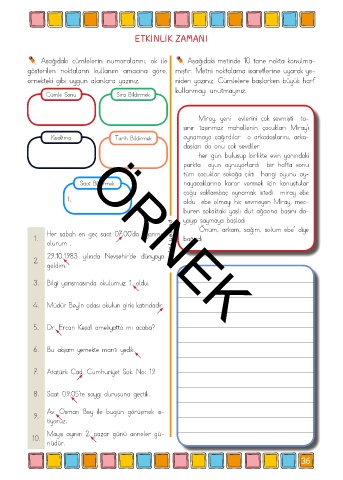 ETKİNLİK ZAMANI
Aşağıdaki cümlelerin numaralarını, ok ile
gösterilen noktaların kullanım amacına göre,
örnekteki gibi uygun alanlara yazınız.
Cümle Sonu
Sıra Bildirmek
Kısaltma
Tarih Bildirmek
Saat Bildirmek
1.
1. Her sabah en geç saat 07.00'da
olurum.
2. 29.10.1983 yılında Nevşehir'de dünyaya
geldim.
3. Bilgi yarışmasında okulumuz 1. oldu.
4. Müdür Bey'in odası okulun giriş katındadır.
5. Dr. Ercan Kesal ameliyatta mı acaba?
6. Bu akşam yemekte mantı yedik.
7. Atatürk Cad. Cumhuriyet Sok. No: 19
8. Saat 09.05'te saygı duruşuna geçtik.
9. Av. Osman Bey ile bugün görüşmek is-
tiyoruz.
10. Mayıs ayının 2. pazar günü anneler gü-
nüdür.
Aşağıdaki metinde 10 tane nokta konulma-
mıştır. Metni noktalama işaretlerine uyarak ye-
niden yazınız. Cümlelere başlarken büyük harf
kullanmayı unutmayınız.
Miray, yeni evlerini çok sevmişti ta-
şınır taşınmaz mahallenin çocukları Miray'ı
oynamaya çağırdılar o arkadaşlarını, arka-
daşları da onu çok sevdiler
her gün buluşup birlikte evin yanındaki
parkta oyun oynuyorlardı bir hafta sonu
tüm çocuklar sokağa çıktı hangi oyunu oy-
nayacaklarına karar vermek için konuştular
çoğu saklambaç oynamak istedi miray ebe
oldu ebe olmayı hiç sevmeyen Miray, mec-
buren sokaktaki yaşlı dut ağacına başını da-
yayıp saymaya başladı
"Önüm, arkam, sağım, solum ebe" diye
bağırdı
ÖRNEK
36